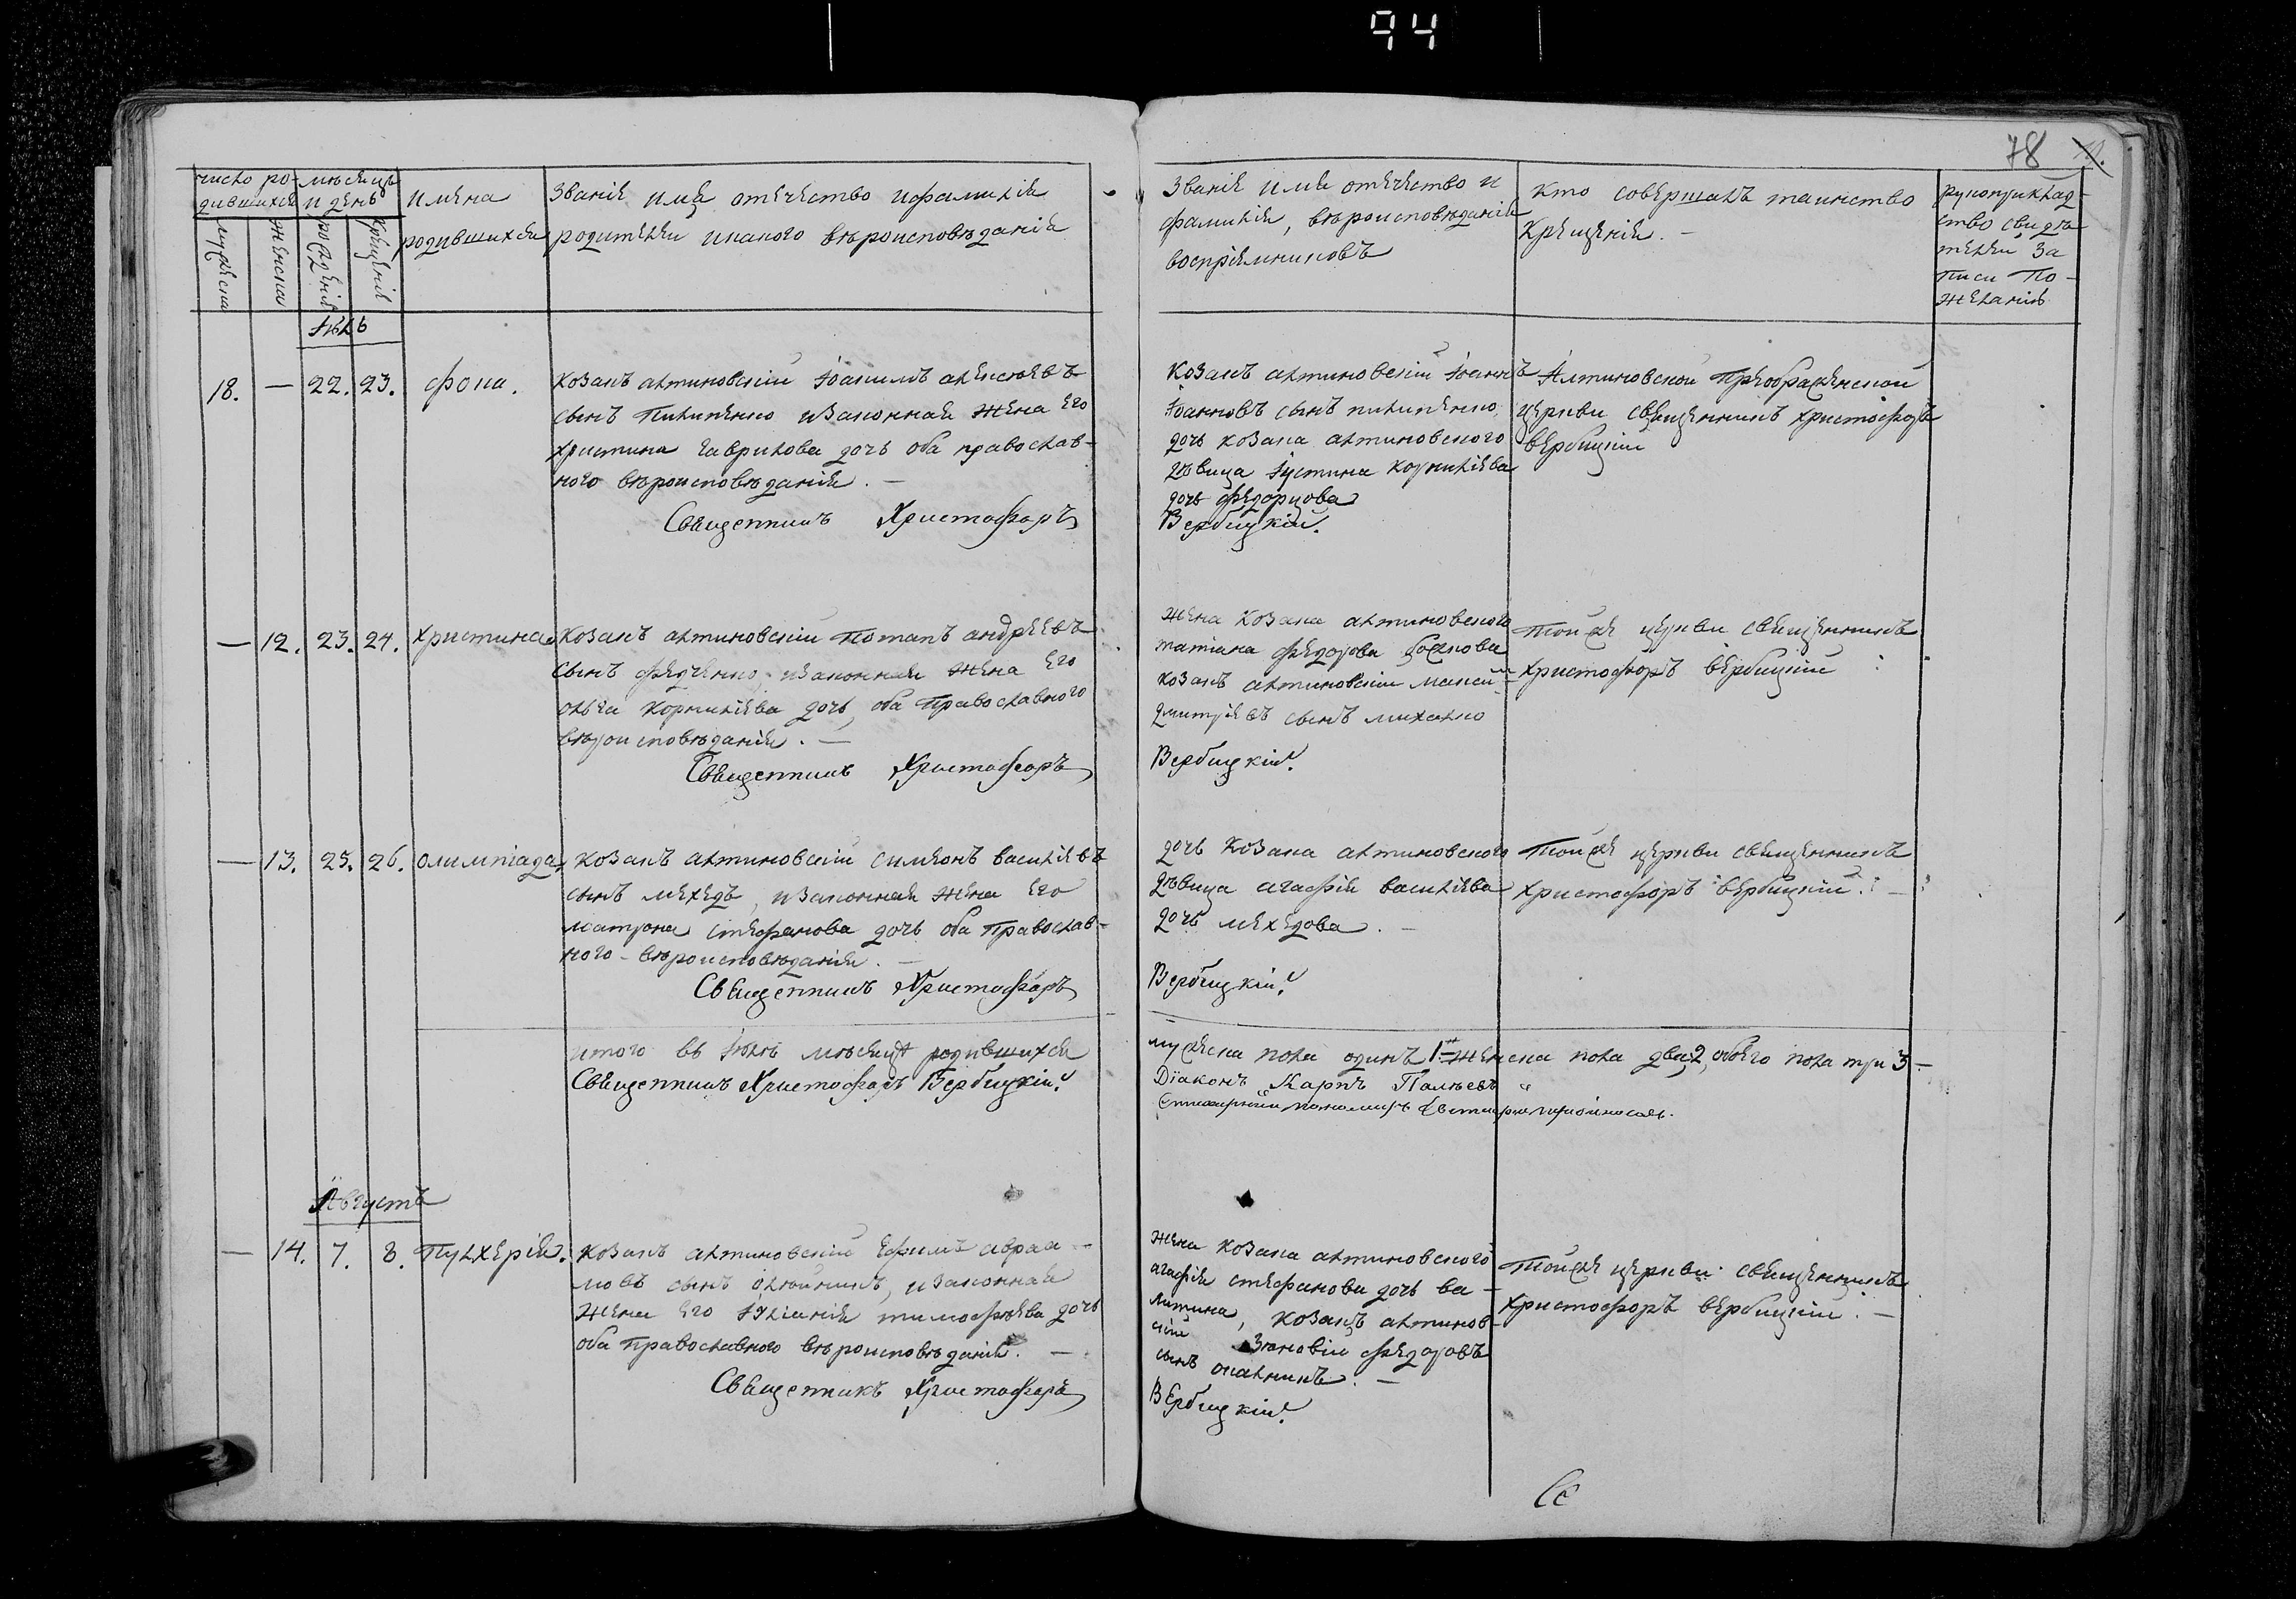 94
78
число ро-
дившихся
мѣсяцъ
и день
имена
родившихся
Званіе имя отечество и фамилія
родителей и какого вѣроисповѣданія
мужеска
женска
рожденія
крещенія
Званіе имя отечество и
фамилія, вѣроисповѣданіе
воспріемниковъ
Кто совершалъ таинство
Крещенія. —
рукоприклад-
ство свидѣ
телей за
писи по-
желанію
Іюль
18. — 22. 23. Фока.
Козакъ алтиновскій Іоакимъ алексіевъ
сынъ Пилипенко изаконная жена его
Христина Гаврилова дочь оба православ-
ного вѣроисповѣданія. —
Священникъ Христофоръ
Козакъ алтиновскій Іоаннъ
Іоанновъ сынъ пилипенко,
дочь козака алтиновского
дѣвица Іустина Корниліева
дочь Федорцова
Вербицкій.
Алтиновской Преображенской
церкви священникъ христофоръ
вербицкій
— 12. 23. 24. Христина
Козакъ алтиновскій Потапъ андреевъ
сынъ Федченко, изаконная жена его
ольга корниліева дочь, оба Православного
вѣроисповѣданія. —
Священникъ Христофоръ
жена козака алтиновского
татіана федорова
козакъ алтиновскій
дмитріевъ сынъ михалко
Вербицкій.
Тойже церкви священникъ
христофоръ вербицкій
— 13. 25. 26. Олимпіада
Козакъ алтиновскій симеонъ василіевъ
сынъ мехедъ, изаконная жена его
матрона стефанова дочь оба Православ-
ного вѣроисповѣданія. —
Священникъ Христофоръ
дочь козака алтиновского
дѣвица агафія василіева
дочь мехедова. —
Вербицкій.
Тойже церкви священникъ
христофоръ вербицкій. —
итого въ Іюлѣ мѣсяцѣ родившихся
мужеска пола одинъ 1 женска пола два 2, обоего пола три 3 —
Священникъ Христофоръ Вербицкій.
Діаконъ Карпъ
Августъ
— 14. 7. 8. Пулхерія.
Козакъ алтиновскій Ефимъ авраа-
мовъ сынъ олюйникъ, изаконная
жена его Іуліанія тимофѣева дочь
оба православного вѣроисповѣданія. —
Священникъ Христофоръ
жена козака алтиновского
агафія стефанова дочь ва-
козакъ алтинов-
скій Зиновій Федоровъ
сынъ
Вербицкій.
Тойже церкви священникъ
христофоръ вербицкій. —